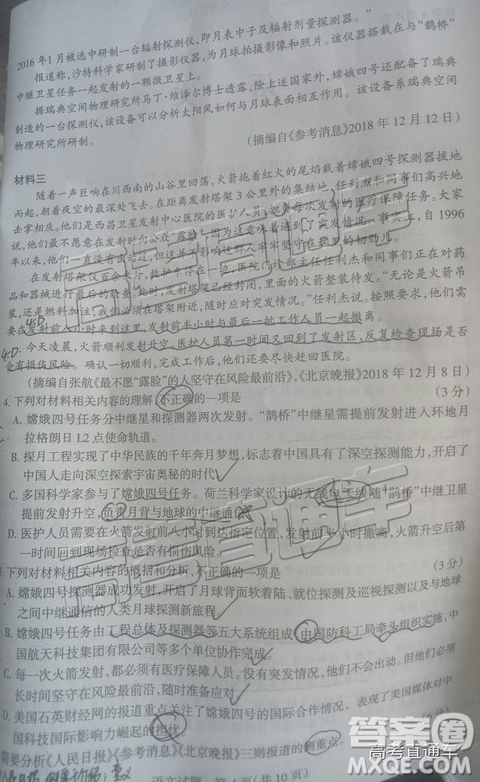 2016年1月被选中研制一台辐射探测仪,即月表中子及辐射剂量探测器。”
报道称,沙特科学家研制了摄影仪器,为月球拍摄影像和照片。该仪器搭载在与“鹊桥”
中继卫星任务一起发射的一颗微卫星上。
据瑞典空间物理研究所马丁·维泽尔博士透露,除上述国家外,嫦娥四号还配备了瑞典
制造的一台探测仪,该设备可以分析太阳风如何与月球表面相互作用。该设备系瑞典空间
物理研究所研制。
(摘编自《参考消息》2018年12月12日)
材料三
随着一声巨响在川西南的山谷里回荡,火箭拖着红火的尾焰载着嫦娥四号探测器拔地
而起,朝着夜空的最深处飞去。在距离发射塔架3公里外的集结地,任利杰和同事们兴奋地
去掌相庆。他们是西昌卫星发射中心医院的医护人员,
说,他们最不愿意在发射时向公众“露脸”,因为这意味着
年以来,他们一直没有出动过,
在发射塔架仅百余米
药品和器械进行最后的
装,还是燃料加注,我们必须在塔架附近,随时应对突发情况。”任利杰说。按照要求,他们需
要在发射前八小时来到这里,发射前半小时与最后一批工作人员一起撤离。
4.D
今天凌晨,火箭顺利发射升空,医护人员第一时间又回到了发射区,反复检查现场是否
4.D.
会有损伤风险。确认一切顺利,完成工作后,他们还要尽快赶回医院。
(摘编自张航《最不愿“露脸”的人坚守在风险最前沿》,《北京晚报》2018年12月8日)
4.下列对材料相关内容的理解,不正确的一项是(3分)
A.嫦娥四号任务分中继星和探测器两次发射。“鹊桥”中继星需提前发射进入环地月
拉格朗日L2点使命轨道。
B.探月工程实现了中华民族的千年奔月梦想,标志着中国具有了深空探测能力,开启了
中国人走向深空探索宇宙奥秘的时代。
C.多国科学家参与了嫦娥四号任务。荷兰科学家设计的无线电天线随“鹊桥”中继卫星
提前发射升空,负责月背与地球的中继通信。
D.医护人员需要在火箭发射前八小时到达指定位置,发射前半小时撤离,火箭升空后第
一时间回到现场检查是否有损伤风险。
下列对材料相关内容的概括和分析,不正确的一项是(3分)
A.嫦娥四号探测器成功发射,开启了月球背面软着陆、就位探测及巡视探测以及与地球
之间中继通信的人类月球探测新旅程。
B.嫦娥四号任务由工程总体及探测器等五大系统组成,由国防科工局牵头组织实施,中
国航天科技集团有限公司等多个单位协作完成。
C.每一次火箭发射,都必须有医疗保障人员。没有突发情况,他们不会出动。但他们必须
长时间坚守在风险最前沿,随时准备应对。
D.美国石英财经网的报道重点关注了嫦娥四号的国际合作情况,表现了美国媒体对中
国科技国际影响力崛起的担忧
简要分析《人民日报》《参考消息》《北京晚报》三则报道的侧重点。
语文试题
(共10页)
高考直通车
答案圈
高考直通车